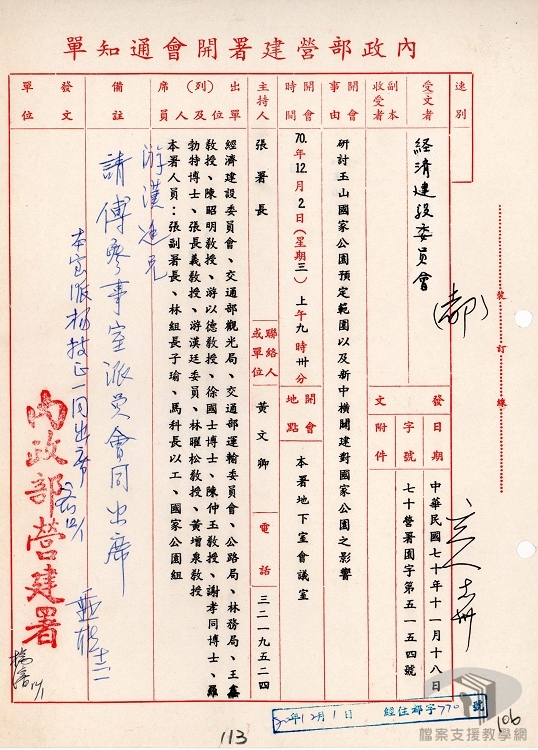 內政部營建署開會通知單
速別
受文者
經濟建設委員會
(都)
副本收受者
發文
日期
中華民國七十年十一月十八日
字號
七十營署園字第五一五四號
附件
開會事由
研討玉山國家公園預定範圍以及新中橫開建對國家公園之影響
開會時間
70.年12月2日(星期三)上午九時卅分
開會地點
本署地下室會議室
主持人
張署長
聯絡人或單位
黃文卿
電話
三二一九五二四
出(列)席單位及人員
經濟建設委員會、交通部觀光局、交通部運輸委員會、公路局、林務局、王鑫
教授、陳昭明教授、游以德教授、徐國士博士、陳仲玉教授、謝孝同博士、羅
勃特博士、張長義教授、游漢廷委員、林曜松教授、黃增泉教授
本署人員:張副署長、林組長子瑜、馬科長以工、國家公園組
備註
游漢廷兄
請傅參事室派員會同出席
本室派楊技正一同出席
發文單位
內政部營建署
裝訂線
70年12月1日
經住都字770號
113
106
檔案支援教學網